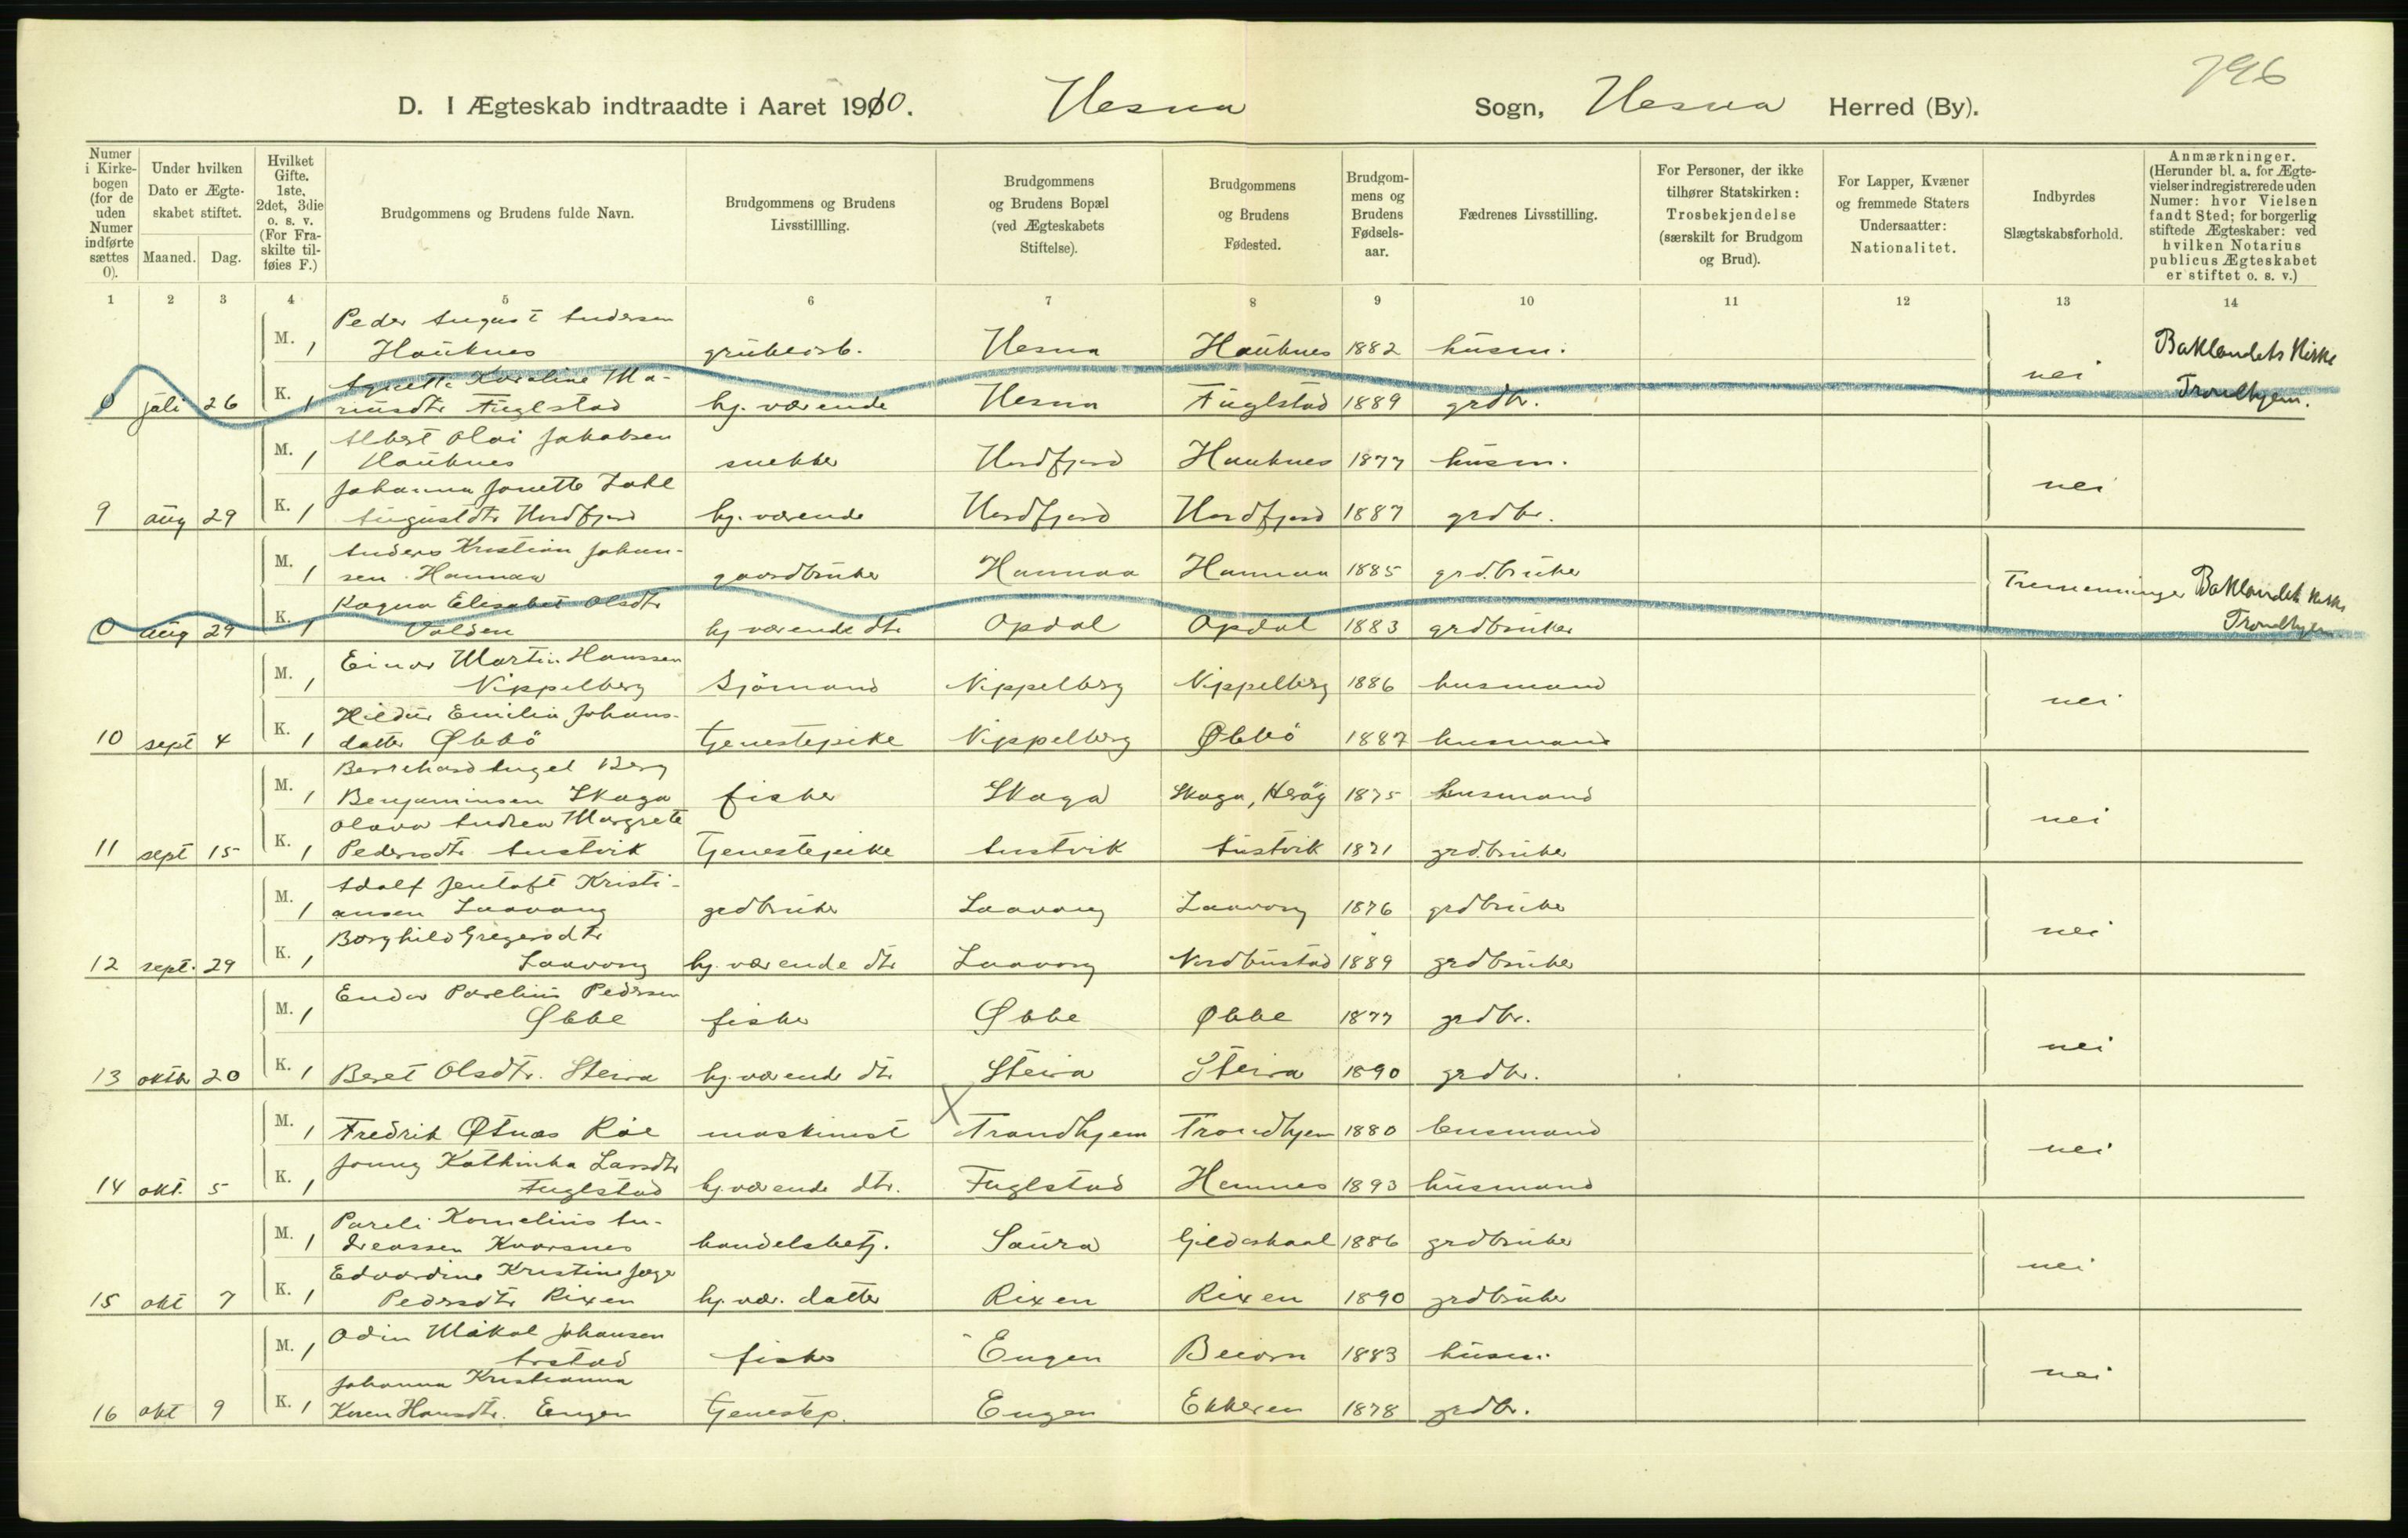 796
D. I Ægteskab indtraadte i Aaret 1910. Nesna Sogn, Nesna Herred (By).
Numer i Kirkebogen (for de uden Numer indførte sættes 0).
Under hvilken Dato er Ægteskabet stiftet.
Maaned. Dag.
Hvilket Gifte. 1ste, 2det, 3die o. s. v. (For Fraskilte tilføies F.)
Brudgommens og Brudens fulde Navn.
Brudgommens og Brudens Livsstillling.
Brudgommens og Brudens Bopæl (ved Ægteskabets Stiftelse).
Brudgommens og Brudens Fødested.
Brudgommens og Brudens Fødselsaar.
Fædrenes Livsstilling.
For Personer, der ikke tilhører Statskirken: Trosbekjendelse (særskilt for Brudgom og Brud).
For Lapper, Kvæner og fremmede Staters Undersaatter: Nationalitet.
Indbyrdes Slægtskabsforhold.
Anmærkninger. (Herunder bl. a. for Ægtevielser indregistrerede uden Numer: hvor Vielsen fandt Sted; for borgerlig stiftede Ægteskaber: ved hvilken Notarius publicus Ægteskabet er stiftet o. s. v.)
1 2 3 4 5 6 7 8 9 10 11 12 13 14
Peder August Andersen
M. 1 Hauknes grubearb. Nesna Hauknes 1882 husm. Baklandets Kirke
Agnette Karoline Ma- nei
0 juli 26 K. 1 riusdtr Fuglstad hj. værende Nesna Fuglstad 1889 grdbr. Trondhjem.
Albert Olai Jakobsen
M. 1 Hauknes snekker Nordfjord Hauknes 1877 husm.
Johanna Jonette Dahl nei
9 aug 29 K. 1 Augustdtr Nordfjord hj. værende Nordfjord Nordfjord 1887 grdbr.
Anders Kristian Johan-
M. 1 sen Hamnaa gaardbruker Hamnaa Hamnaa 1885 grd.bruker Tremenninger Baklandets Kirke
Ragna Elisabet Olsdtr
0 aug 29 K. 1 Volden hj værende dtr Opdal Opdal 1883 grdbruker Trondhjem
Einar Martin Hanssen
M. 1 Nippelberg Sjömand Nippelberg Nippelberg 1886 husmand
Hildur Emilia Johans- nei
10 sept 4 K. 1 datter Økkö tjenestepike Nippelberg Økkö 1887 husmand
Bernhard Angel Berg
M. 1 Benjaminsen Skaga fisker Skaga Skaga, Herøy 1875 husmand
Olava Andrea Margrete nei
11 sept 15 K. 1 Pedersdtr Austvik Tjenestepike Austvik Austvik 1871 grd.bruker
Adolf Jentoft Kristi-
M. 1 ansen Laavong grdbruker Laavong Laavong 1876 grdbruker
Borghild Gregersdtr nei
12 sept. 29 K. 1 Laavong hj. værende dtr Laavong Nordbustad 1889 grdbruker
Endor Parelius Pedersen
M. 1 Økke fisker Økke Økke 1877 grdbr.
nei
13 oktbr 20 K. 1 Beret Olsdtr. Steira hj. værende dtr Steira Steira 1890 grdbr.
X
M. 1 Fredrik Øtnæs Röe maskinist Trondhjem Trondhjem 1880 husmand
Jenny Kathinka Larsdtr nei
14 okt. 5 K. 1 Fuglstad hj. værende dtr. Fuglstad Hemnes 1893 husmand
Pareli Kornelius An-
M. 1 dreassen Kvarsnes handelsbetj. Saura Gildeskaal 1886 grdbruker
Edvardine Kristine nei
15 okt 7 K. 1 Pedersdtr Rixen hj. vær. datter Rixen Rixen 1890 grdbruker
Odin Mikal Johansen
M. 1 Arstad fisker Engen Beiarn 1883 husm.
Johanna Kristianna nei
16 okt 9 K. 1 Karen Hansdtr. Engen Tjenestep. Engen Ekkeren 1878 grdbr.